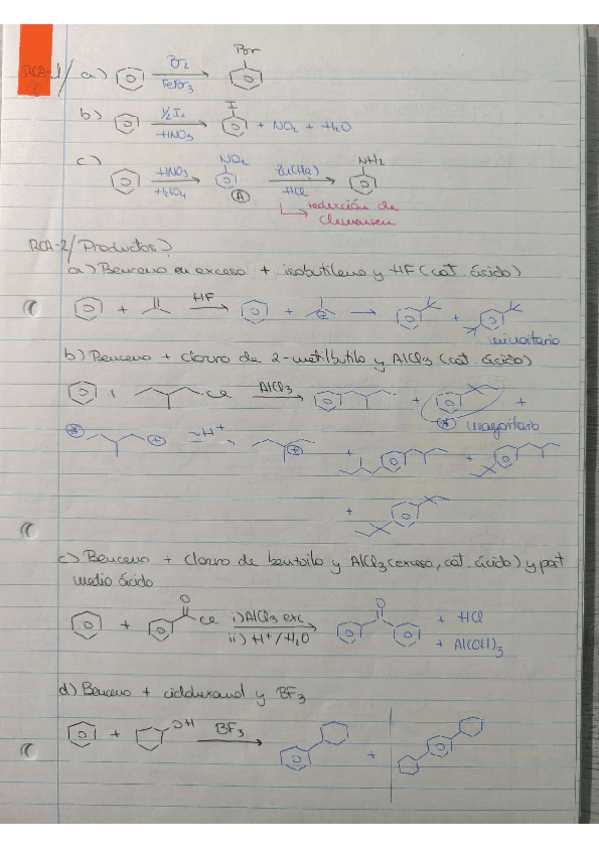 RCA-1/ a) Br₂ FeBr₃ Br
b) ½ I₂ HNO₃ I + NO₂ + H₂O
c) HNO₃ H₂SO₄ NO₂ A Zn(Hg) HCl NH₂
reducción de Clemmensen
RCA-2/ Productos?
a) Benceno en exceso + isobutileno y HF (cat. ácido)
+ HF + + → +
minoritario
b) Benceno + cloruro de 2-metilbutilo y AlCl₃ (cat. ácido)
+ Cl AlCl₃ + +
* mayoritario
* + ~H⁺ + + +
+
c) Benceno + cloruro de benzoilo y AlCl₃ (exceso, cat. ácido) y post
medio ácido
+ O Cl i) AlCl₃ exc O + HCl
ii) H⁺/H₂O + Al(OH)₃
d) Benceno + ciclohexanol y BF₃
+ OH BF₃ +